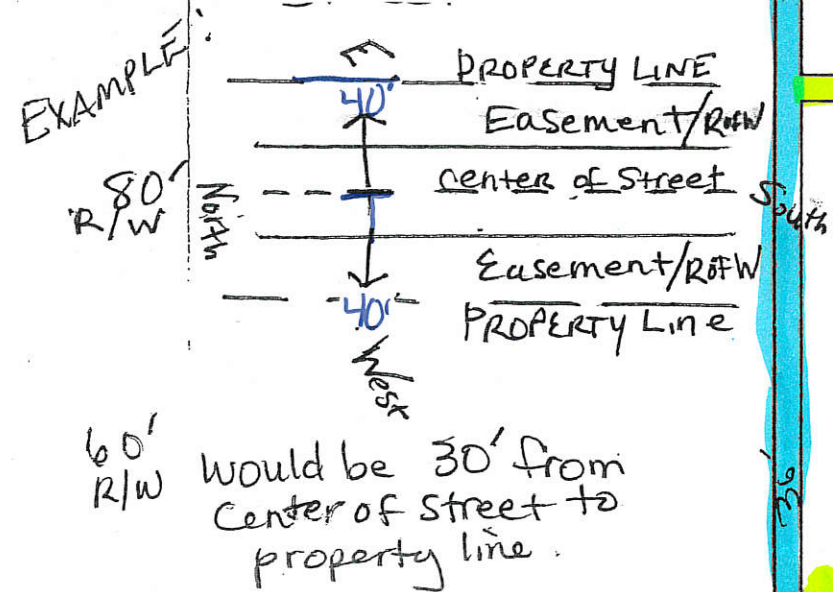 EXAMPLE:
E
PROPERTY LINE
40'
Easement/RofW
80'
R/W
North
center of Street
South
Easement/RofW
40'
PROPERTY Line
West
60'
R/W would be 30' from
Center of Street to
property line.
36'